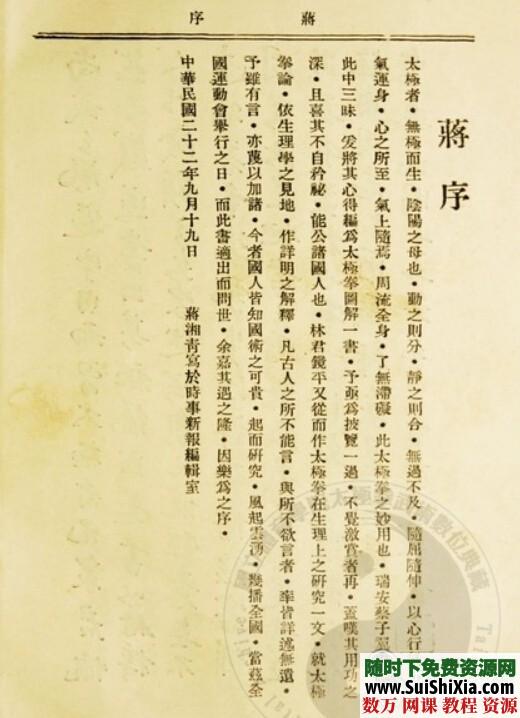 蔣序
蔣序
太極者•無極而生•陰陽之母也•動之則分•靜之則合•無過不及•隨屈隨伸•以心行
氣運身•心之所至•氣上隨焉•周流全身•了無滯礙•此太極拳之妙用也•瑞安蔡子
此中三昧•爰將其心得編爲太極拳圖解一書•予亟爲披覽一過•不覺激賞者再•蓋嘆其用功之
深•且喜其不自矜祕•能公諸國人也•林君鏡平又從而作太極拳在生理上之硏究一文•就太極
拳論•依生理學之見地•作詳明之解釋•凡古人之所不能言•與所不欲言者•率皆詳述無遺•
予雖有言•亦蔑以加諸•今者國人皆知國術之可貴•起而硏究•風起雲湧•幾播全國•當茲全
國運動會舉行之日•而此書適出而問世•余嘉其遇之隆•因樂爲之序•
中華民國二十二年九月十九日 蔣湘靑寫於時事新報編輯室
随时下免费资源网
www.SuiShiXia.com
数万 网课 教程 资源